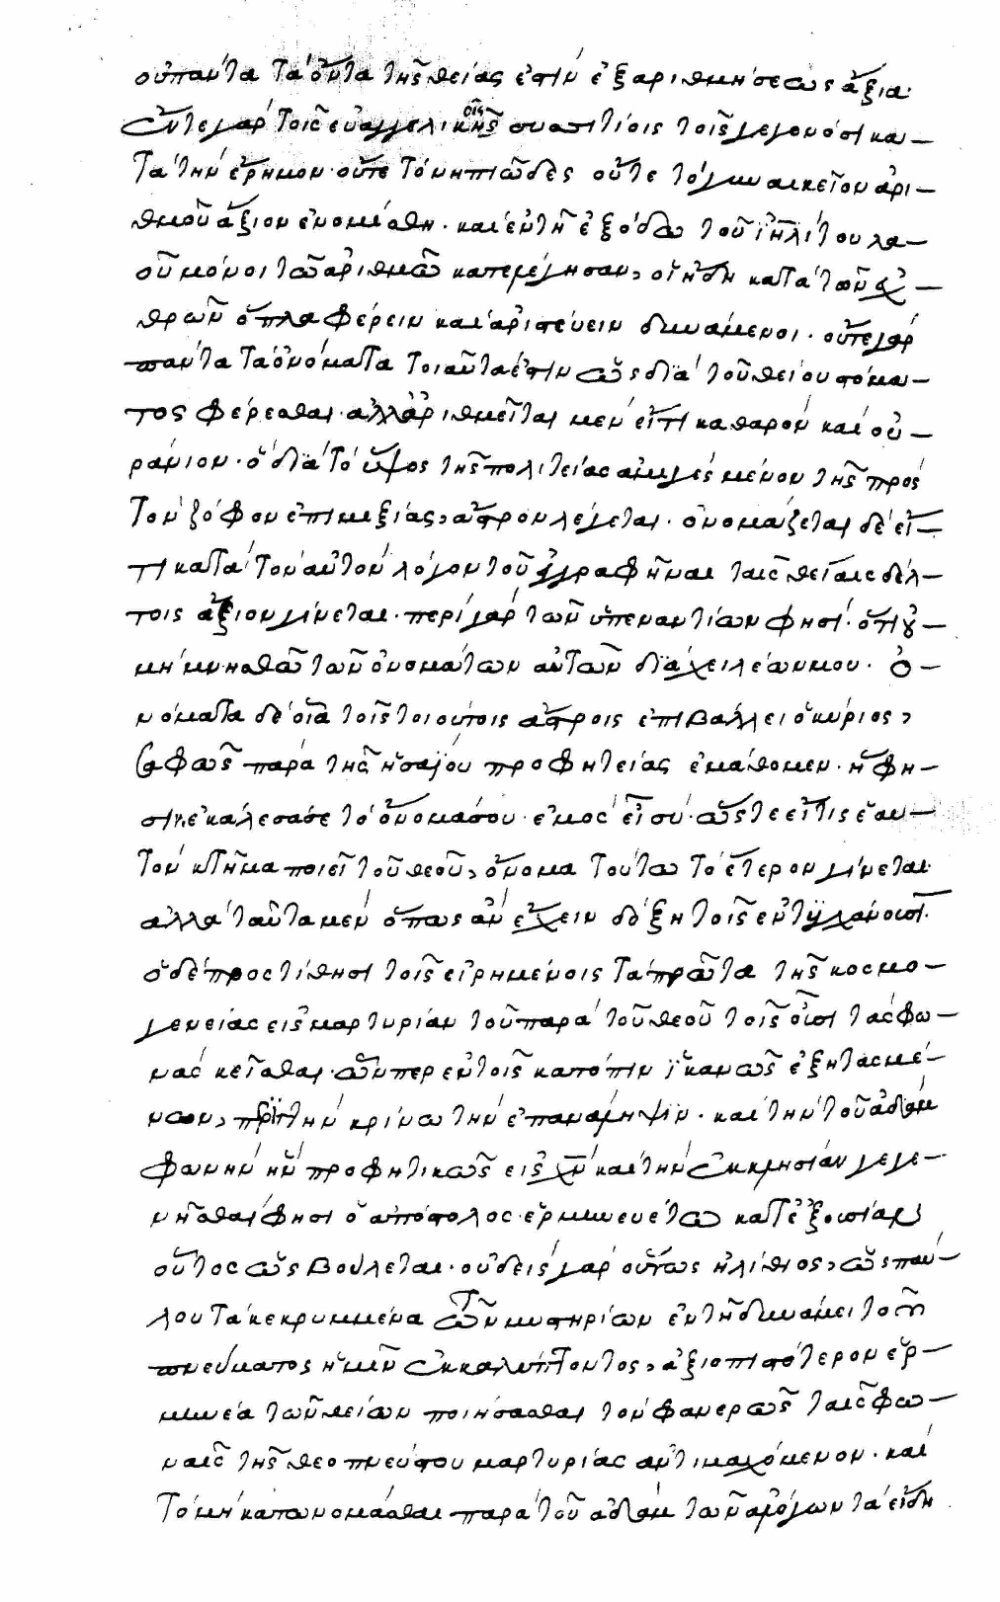 οὐ πάντα τὰ ὄντα τῆς θείας ἐστὶν ἐξαριθμήσεως ἄξια·
οὔτε γὰρ τοῖς εὐαγγελικοῖς συσσιτίοις τοῖς γεγονόσι κα–
τὰ τὴν ἔρημον· οὔτε τὸ νηπιῶδες οὔτε τὸ γυναικεῖον ἀρι–
θμοῦ ἄξιον ἐνομίσθη· καὶ ἐν τῇ ἐξόδω τοῦ ἰηλίτου λα–
οῦ μόνοι τῶ ἀριθμῶ κατεμέγησαν, οἱ ἤδη κατὰ τῶν ἐχ–
θρῶν ὅπλα φέρειν καὶ ἀριστεύειν δυνάμενοι· οὔτε γὰρ
πάντα τὰ ὀνόματα τοιαῦτά ἐστιν ὡς διὰ τοῦ θείου στόμα–
τος φέρεσθαι· ἀλλ' ἀριθμεῖται μὲν εἴ τι καθαρὸν καὶ οὐ–
ράνιον· ὃ διὰ τὸ ὕψος τῆς πολιτείας ἀμιγὲς μένον τῆς πρὸς
τὸν ζόφον ἐπιμιξίας, ἄστρον λέγεται· ὀνομάζεται δὲ εἴ–
τι κατὰ τὸν αὐτὸν λόγον τοῦ ἐγγραφῆναι ταῖς θείαις δέλ–
τοις ἄξιον γίνεται· περὶ γὰρ τῶν ὑπεναντίων φησὶ· ὅτι οὐ–
μὴ μνησθῶ τῶν ὀνομάτων αὐτῶν διὰ χειλέων μου· ὀ–
νόματα δὲ οἷα τοῖς τοιούτοις ἄστροις ἐπιβάλλει ὁ κύριος,
σαφῶς παρὰ τῆς ἡσαΐου προφητείας ἐμάθομεν· ἥ φη–
σιν, ἐκάλεσά σε τὸ ὄνομά σου· ἐμὸς εἶ σύ· ὥστε εἴ τις ἑαυ–
τὸν κτῆμα ποιεῖ τοῦ θεοῦ, ὄνομα τούτω τὸ ἕτερον γίνεται·
ἀλλὰ ταῦτα μὲν ὅπως ἂν ἔχειν δόξη τοῖς ἐντυγχάνουσι·
ὃ δὲ προστίθησι τοῖς εἰρημένοις τὰ πρῶτα τῆς κοσμο–
γενείας εἰς μαρτυρίαν τοῦ παρὰ τοῦ θεοῦ τοῖς οὖσι τὰς φω–
νὰς κεῖσθαι· ὧνπερ ἐν τοῖς κατόπιν ἱκανῶς ἐξητασμέ–
νων, περιττὴν κρίνω τὴν ἐπανάληψιν· καὶ τὴν τοῦ ἀδὰμ
φωνὴν ἣν προφητικῶς εἰς χν καὶ τὴν ἐκκλησίαν γεγε–
νῆσθαι φησι ὁ ἀπόστολος· ἑρμηνευέτω κατ' ἐξουσίαν
οὗτος ὡς βούλεται· οὐδεὶς γὰρ οὕτως ἠλίθιος, ὡς παύ–
λου τὰ κεκρυμμένα τῶν μυστηρίων ἐν τῇ δυνάμει τοῦ
πνεύματος ἡμῖν ἐκκαλύπτοντος, ἀξιοπιστότερον ἑρ–
μηνέα τῶν θείων ποιήσασθαι τὸν φανερῶς ταῖς φω–
ναῖς τῆς θεοπνεύστου μαρτυρίας ἀντιμαχόμενον· καὶ
τὸ μὴ κατωνομάσθαι παρὰ τοῦ ἀδὰμ τῶν ἀλόγων τὰ εἴδη